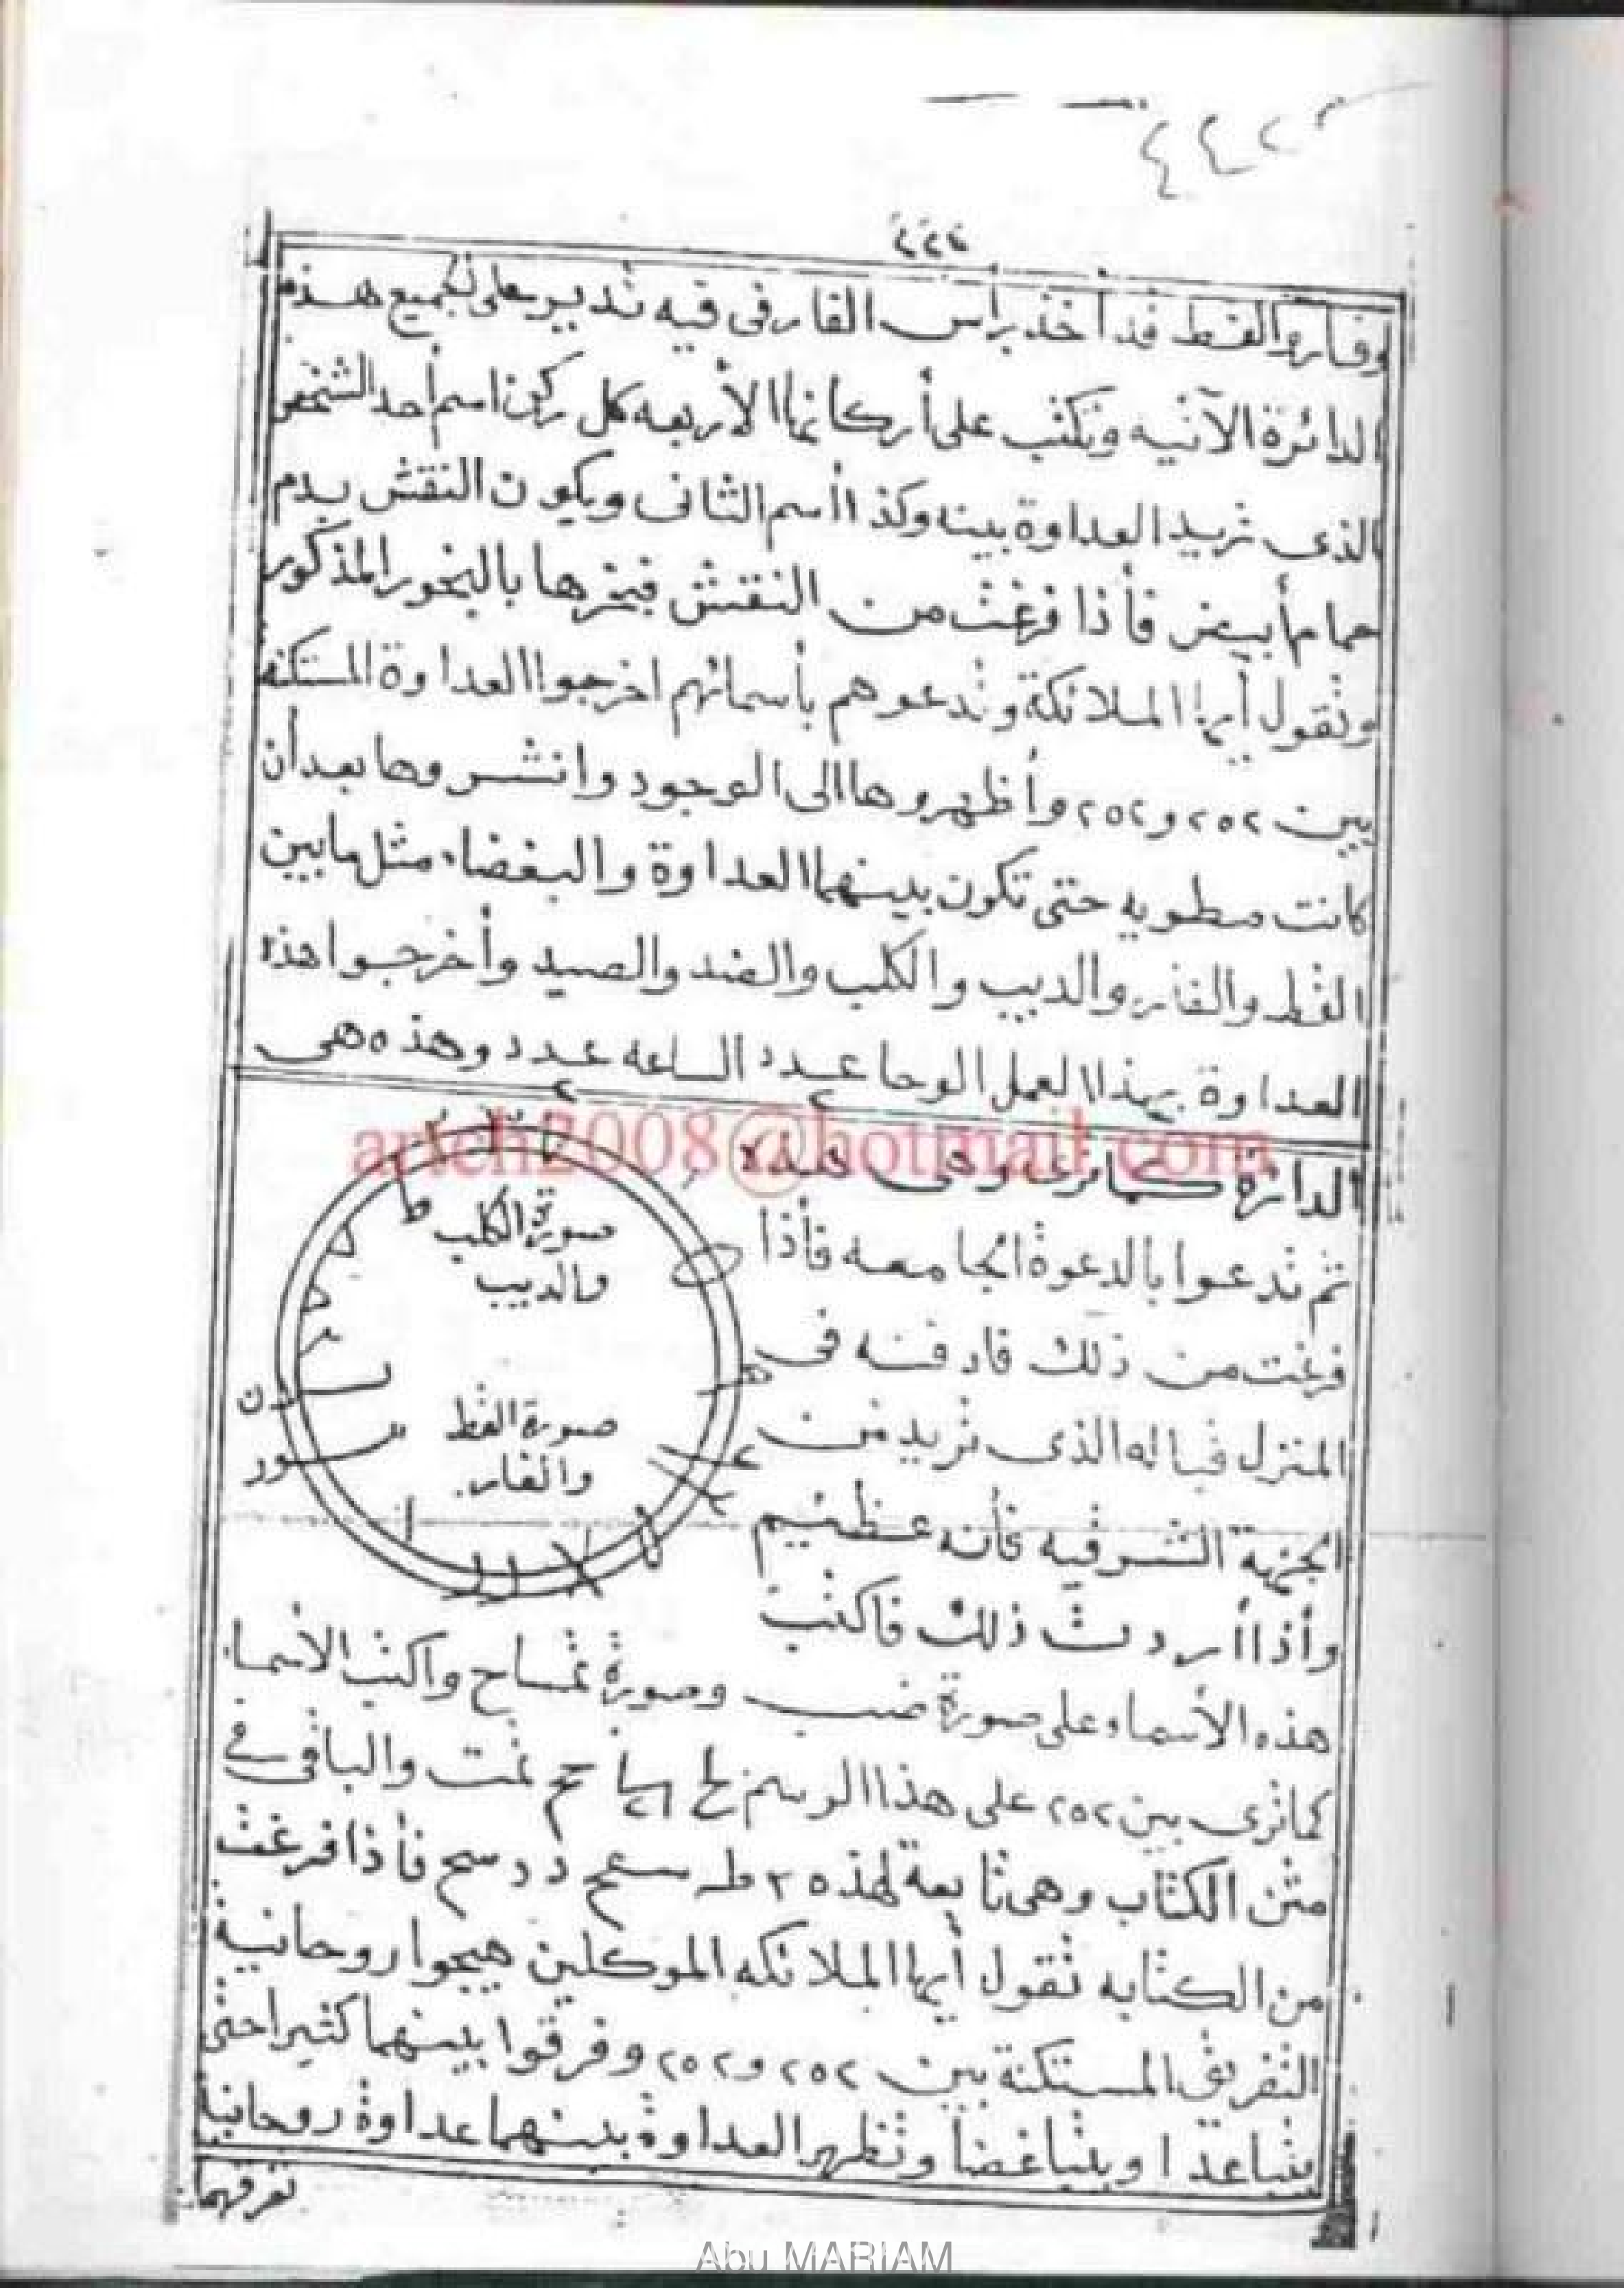 ٤٤٢
٤٤٢
وفار والقط قد أخذ برأس الفار فى فيه تدير على الجميع هذه
الدائرة الآتيه وتكتب على أركانها الأربعه كل ركن اسم أحد الشخص
الذى تريد العداوة بينه وكذا اسم الثانى ويكون النقش بدم
حمام أبيض فأذا فرغت من النقش فبخرها بالبخور المذكور
وتقول أيها الملائكة وتدعوهم بأسمائهم اخرجوا العداوة المستكنه
بين ٢٥٢ و ٢٥٢ وأظهروها الى الوجود وانشروها بعد أن
كانت مطويه حتى تكون بينهما العداوة والبغضاء مثل ما بين
القط والفار والديب والكلب والصيد وأخرجوا هذه
العداوة بهذا العمل الوحا عدد ٢ الساعه عدد ٢ وهذه هى
artch2008@hotmail.com
الدائرة كما ترى وهى هذه
ثم تدعوا بالدعوة الجامعه فأذا
فرغت من ذلك فادفنه فى
المنزل قباله الذى تريد من
الجهة الشرقيه فأنه عظيم
وأذا أردت ذلك فاكتب
صورة الكلب
والديب
صورة القط
والفار
هذه الأسماء على صورة ضب وصورة تمساح واكتب الأسماء
كما ترى بين ٢٥٢ على هذا الرسم تمت والباقى فى
متن الكتاب وهى تابعة لهذه فأذا فرغت
من الكتابه تقول أيها الملائكه الموكلين هيجوا روحانية
التفريق المستكنة بين ٢٥٢ و ٢٥٢ وفرقوا بينهما كثيرا حتى
يتباعدا ويتباغضا وتظهر العداوة بينهما عداوة روحانية
تفرقهما
Abu MARIAM